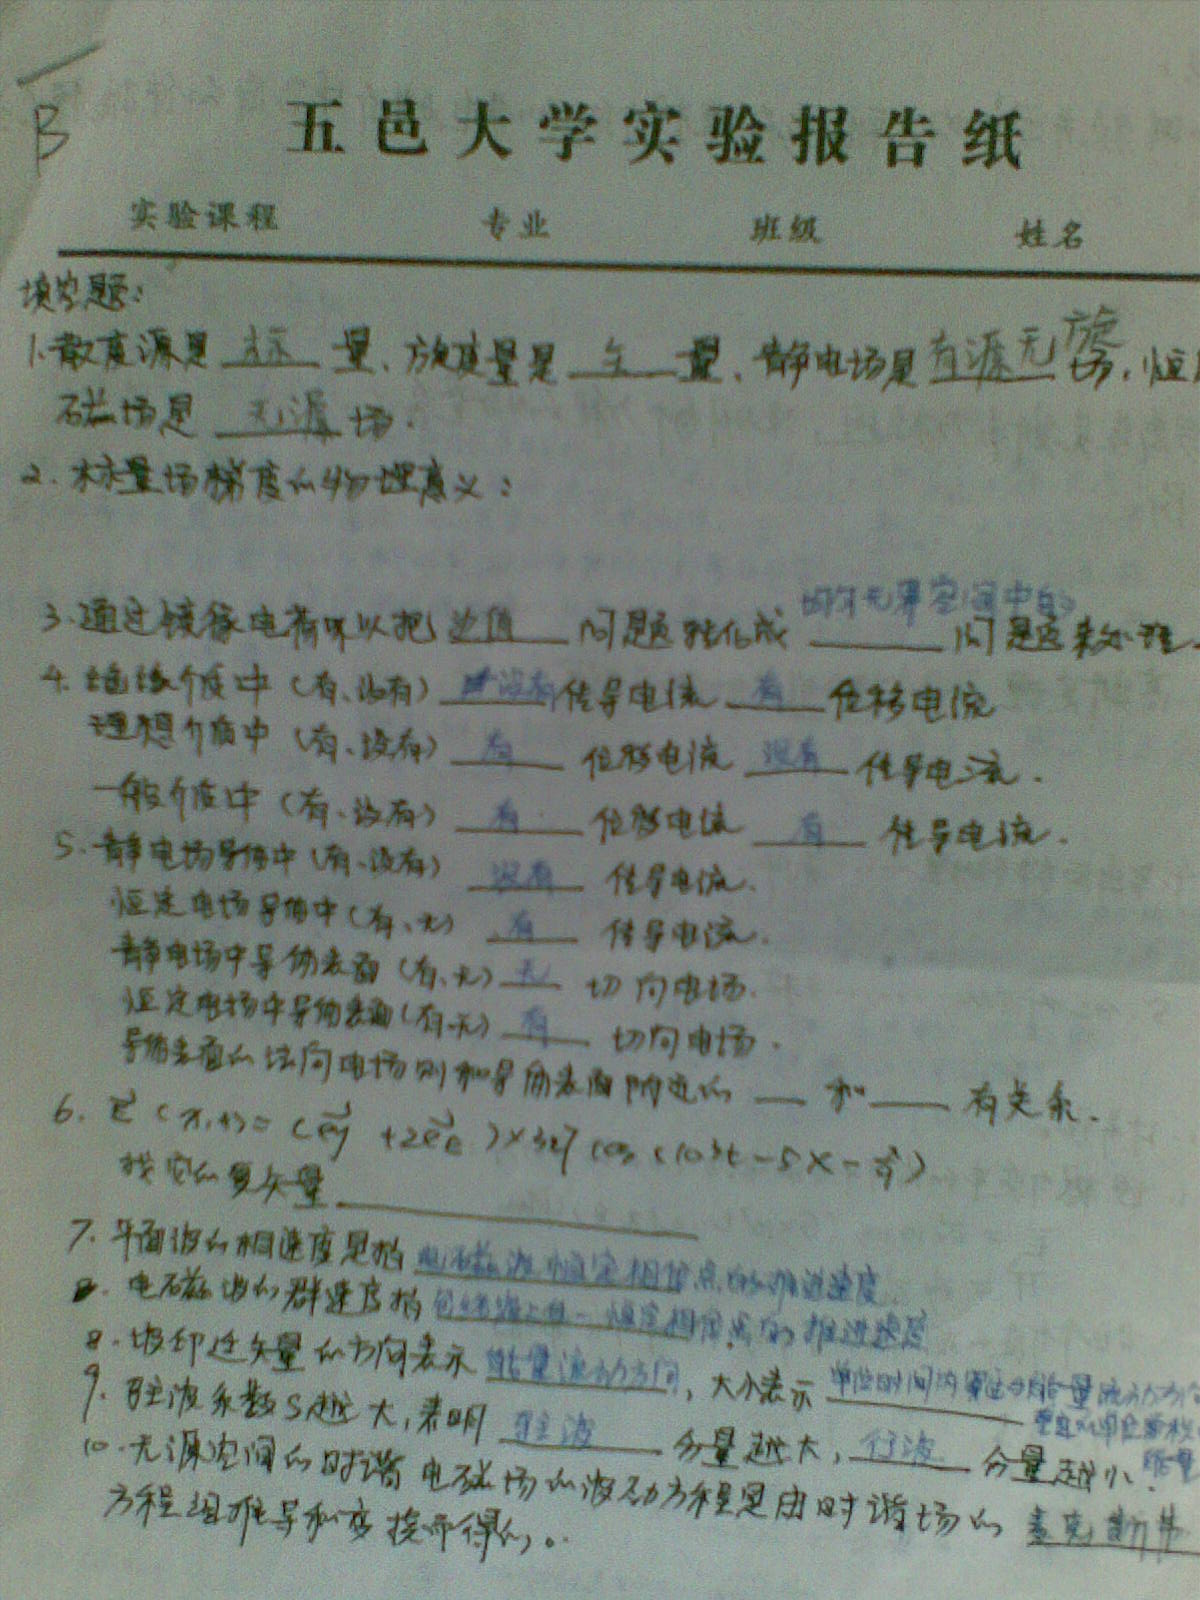 B
五邑大学实验报告纸
实验课程 专业 班级 姓名
填空题：
1. 散度源是 标 量、旋度量是 矢 量、静电场是 有源无旋 场，恒
磁场是 无源 场.
2. 标量场梯度的物理意义：
3. 通过镜像电荷可以把 边值 问题转化成 无界空间中的 问题来处理.
4. 绝缘介质中（有、没有） 没有 传导电流 有 位移电流
理想介质中（有、没有） 有 位移电流 没有 传导电流.
一般介质中（有、没有） 有 位移电流 有 传导电流.
5. 静电场导体中（有、没有） 没有 传导电流.
恒定电场导体中（有、无） 有 传导电流.
静电场中导体表面（有、无） 无 切向电场.
恒定电场中导体表面（有、无） 有 切向电场.
导体表面的法向电场则和导体表面附近的 __ 和 __ 有关系.
6. E cos(10 t - 5x -
找它的复矢量
7. 平面波的相速度是指 电磁波恒定相位点的推进速度
8. 电磁波的群速度指 包络波上某一恒定相位点的推进速度
8. 坡印廷矢量的方向表示 能量流动方向，大小表示 单位时间内
垂直 单位面积
能量
9. 驻波系数S越大，表明 驻波 分量越大， 行波 分量越小.
10. 无源空间的时谐电磁场的波动方程是由时谐场的 麦克斯韦
方程组推导和变换而得的。